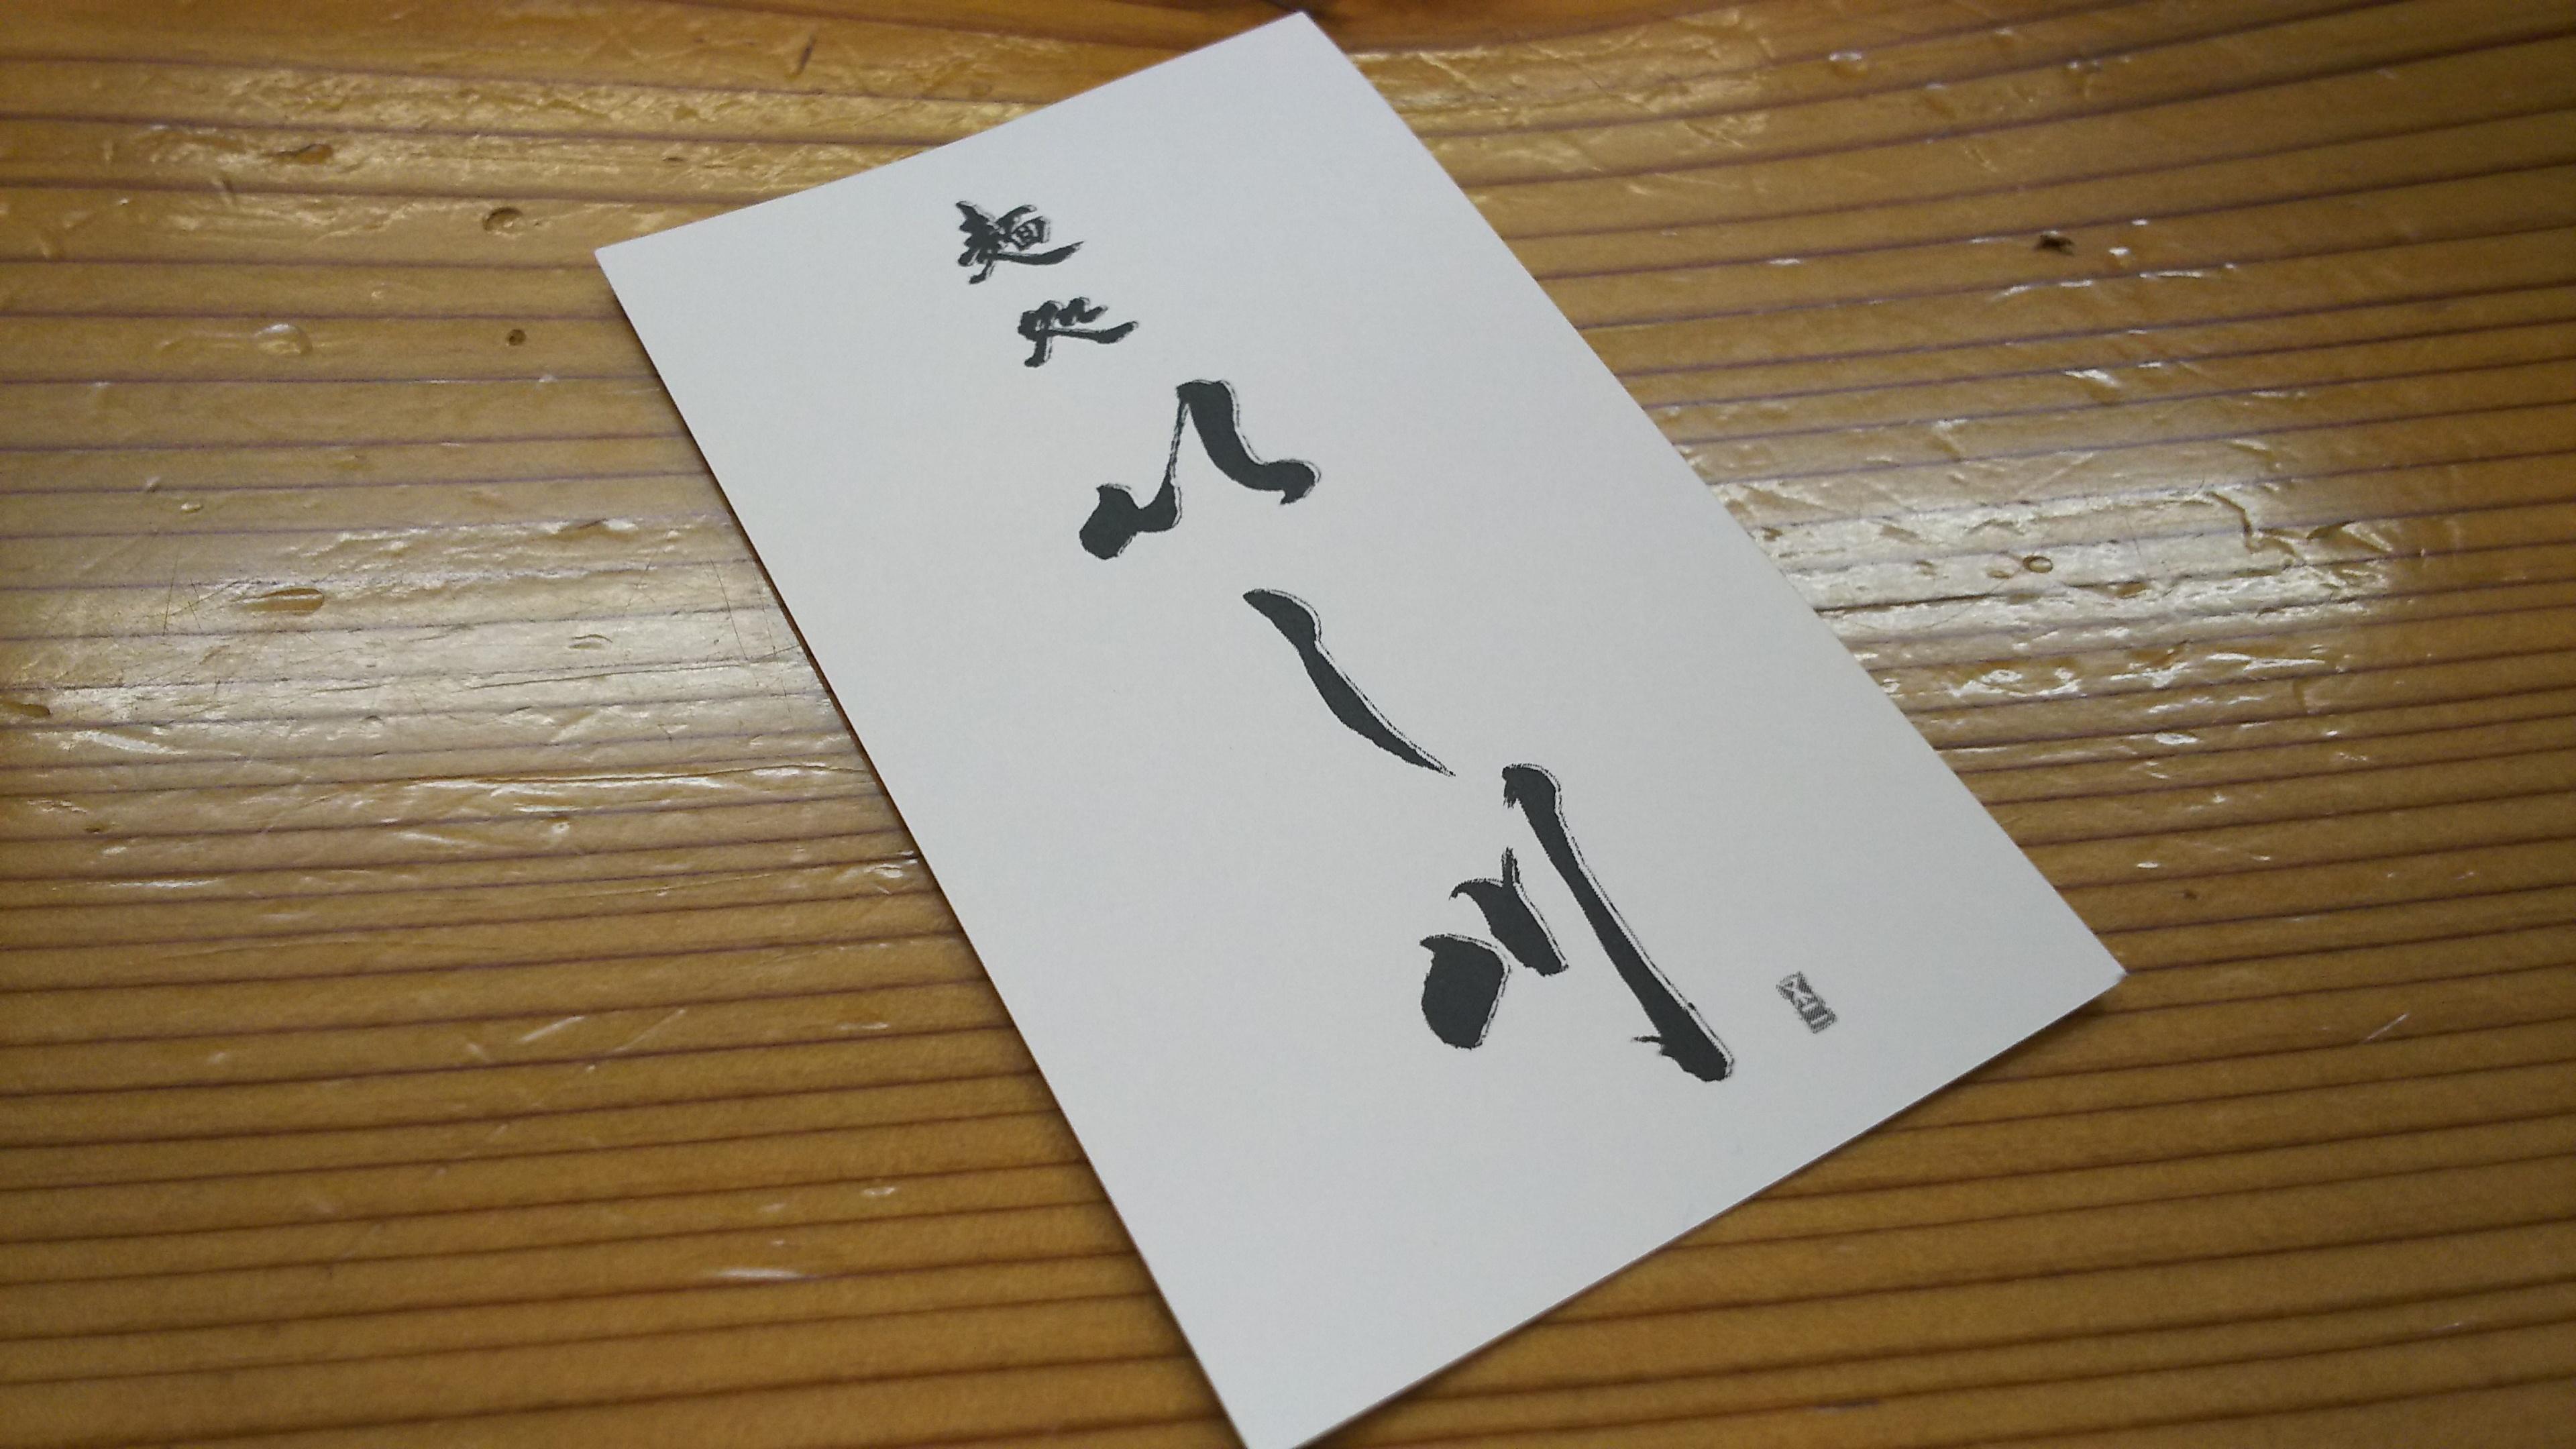 麺処いし川